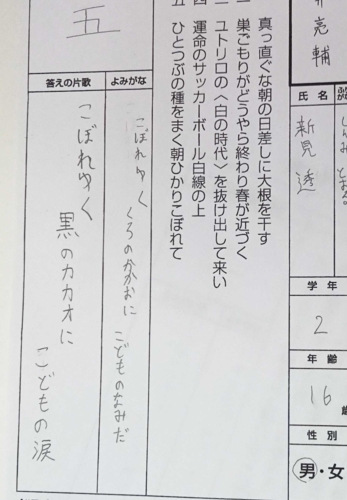 亮輔
氏名
新見 透
しんみ とおる
学年
2
年齢
16
歳
性別
男・女
真っ直ぐな朝の日差しに大根を干す
巣ごもりがどうやら終わり春が近づく
ユトリロの〈白の時代〉を抜け出して来い
四 運命のサッカーボール白線の上
五 ひとつぶの種をまく朝ひかりこぼれて
五
よみがな
こぼれゆく くろのかかおに こどものなみだ
答えの片歌
こぼれゆく
黒のカカオに
こどもの涙